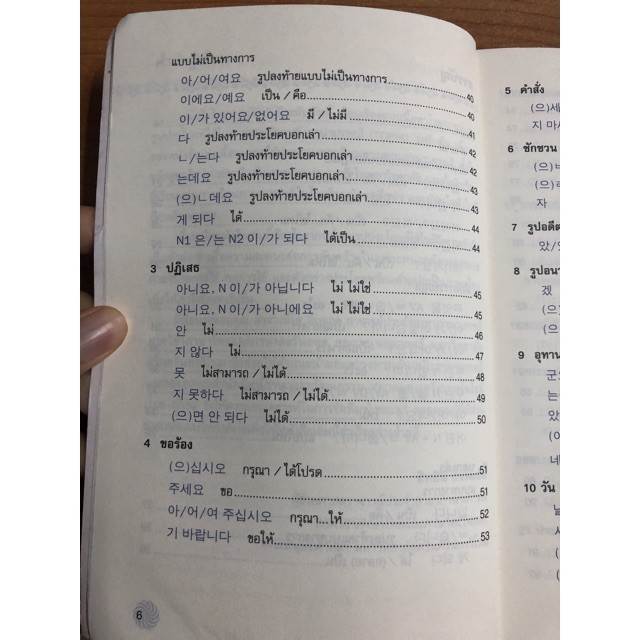 แบบไม่เป็นทางการ
아/어/여요 รูปลงท้ายแบบไม่เป็นทางการ..........40
이에요/예요 เป็น / คือ..........40
이/가 있어요/없어요 มี / ไม่มี..........41
다 รูปลงท้ายประโยคบอกเล่า..........42
ㄴ/는다 รูปลงท้ายประโยคบอกเล่า..........42
는데요 รูปลงท้ายประโยคบอกเล่า..........43
(으)ㄴ데요 รูปลงท้ายประโยคบอกเล่า..........43
게 되다 ได้..........44
N1 은/는 N2 이/가 되다 ได้เป็น..........44
3 ปฏิเสธ
아니요, N 이/가 아닙니다 ไม่ ไม่ใช่..........45
아니요, N 이/가 아니에요 ไม่ ไม่ใช่..........45
안 ไม่..........46
지 않다 ไม่..........47
못 ไม่สามารถ / ไม่ได้..........48
지 못하다 ไม่สามารถ / ไม่ได้..........49
(으)면 안 되다 ไม่ได้..........50
4 ขอร้อง
(으)십시오 กรุณา / ได้โปรด..........51
주세요 ขอ..........51
아/어/여 주십시오 กรุณา...ให้..........52
기 바랍니다 ขอให้..........53
6
5 คำสั่ง
(으)세
지 마
6 ชักชวน
(으)
(으)
자
7 รูปอดีต
았/
8 รูปอนา
겠
(으)
(
9 อุทาน
군
는
았
(
네
10 วัน